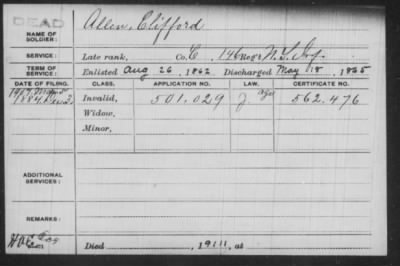 DEAD
NAME OF SOLDIER: Allen, Clifford
SERVICE: Late rank, Co. C, 146 Reg't N.Y. Inf
TERM OF SERVICE: Enlisted Aug 26, 1862 Discharged May 18, 1865
DATE OF FILING. CLASS. APPLICATION NO. LAW. CERTIFICATE NO.
1907 Age
1884 Invalid, 501.029 562.476
Widow,
Minor,
ADDITIONAL SERVICES:
REMARKS:
Died , 191 , at